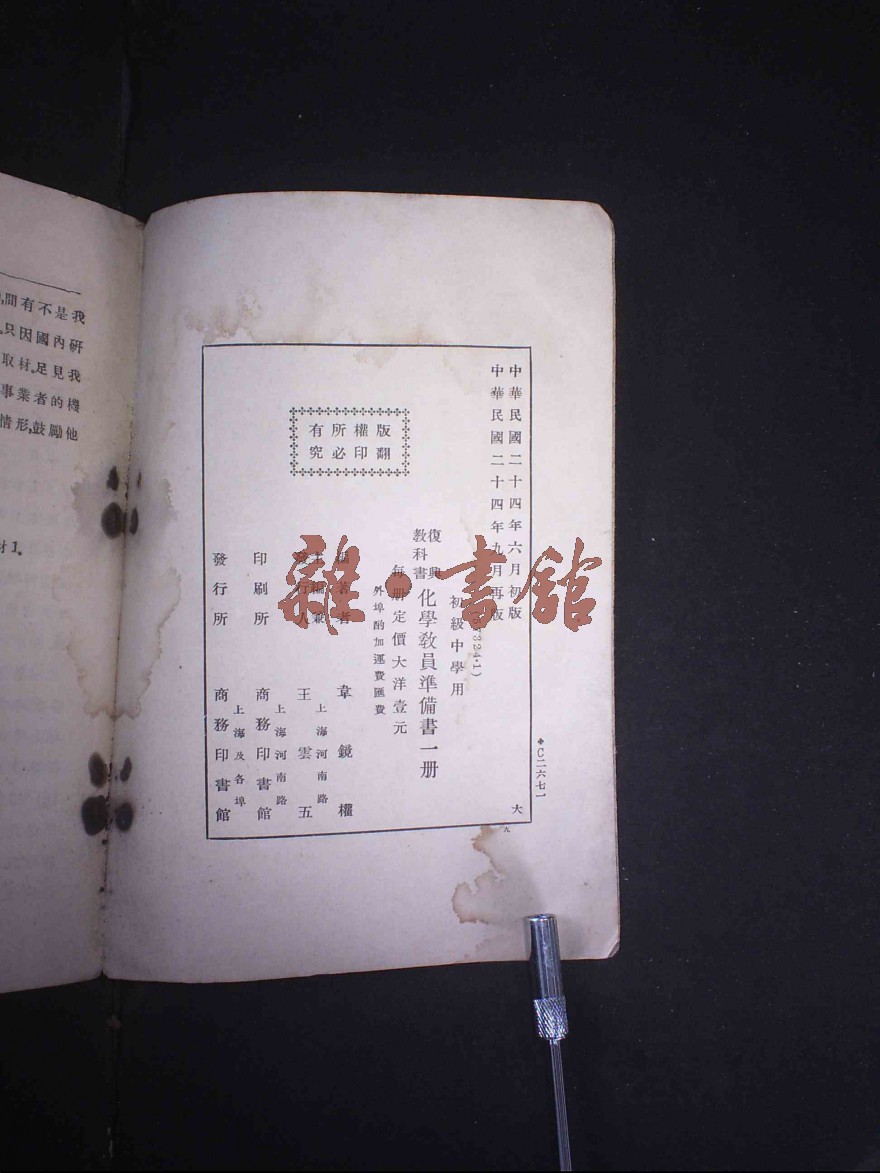 中華民國二十四年六月初版
中華民國二十四年九月再版
大
初級中學用
復興教科書
化學教員準備書一册
每册定價大洋壹元
外埠酌加運費匯費
版權所有
翻印必究
編著者 韋鏡權
主編兼發行人 王雲五
上海河南路
印刷所 商務印書館
上海河南路
發行所 商務印書館
上海及各埠
◆C二六七一
九
雜·書館
間有不是我
只因國內研
取材,足見我
事業者的機
情形,鼓勵他
材1。